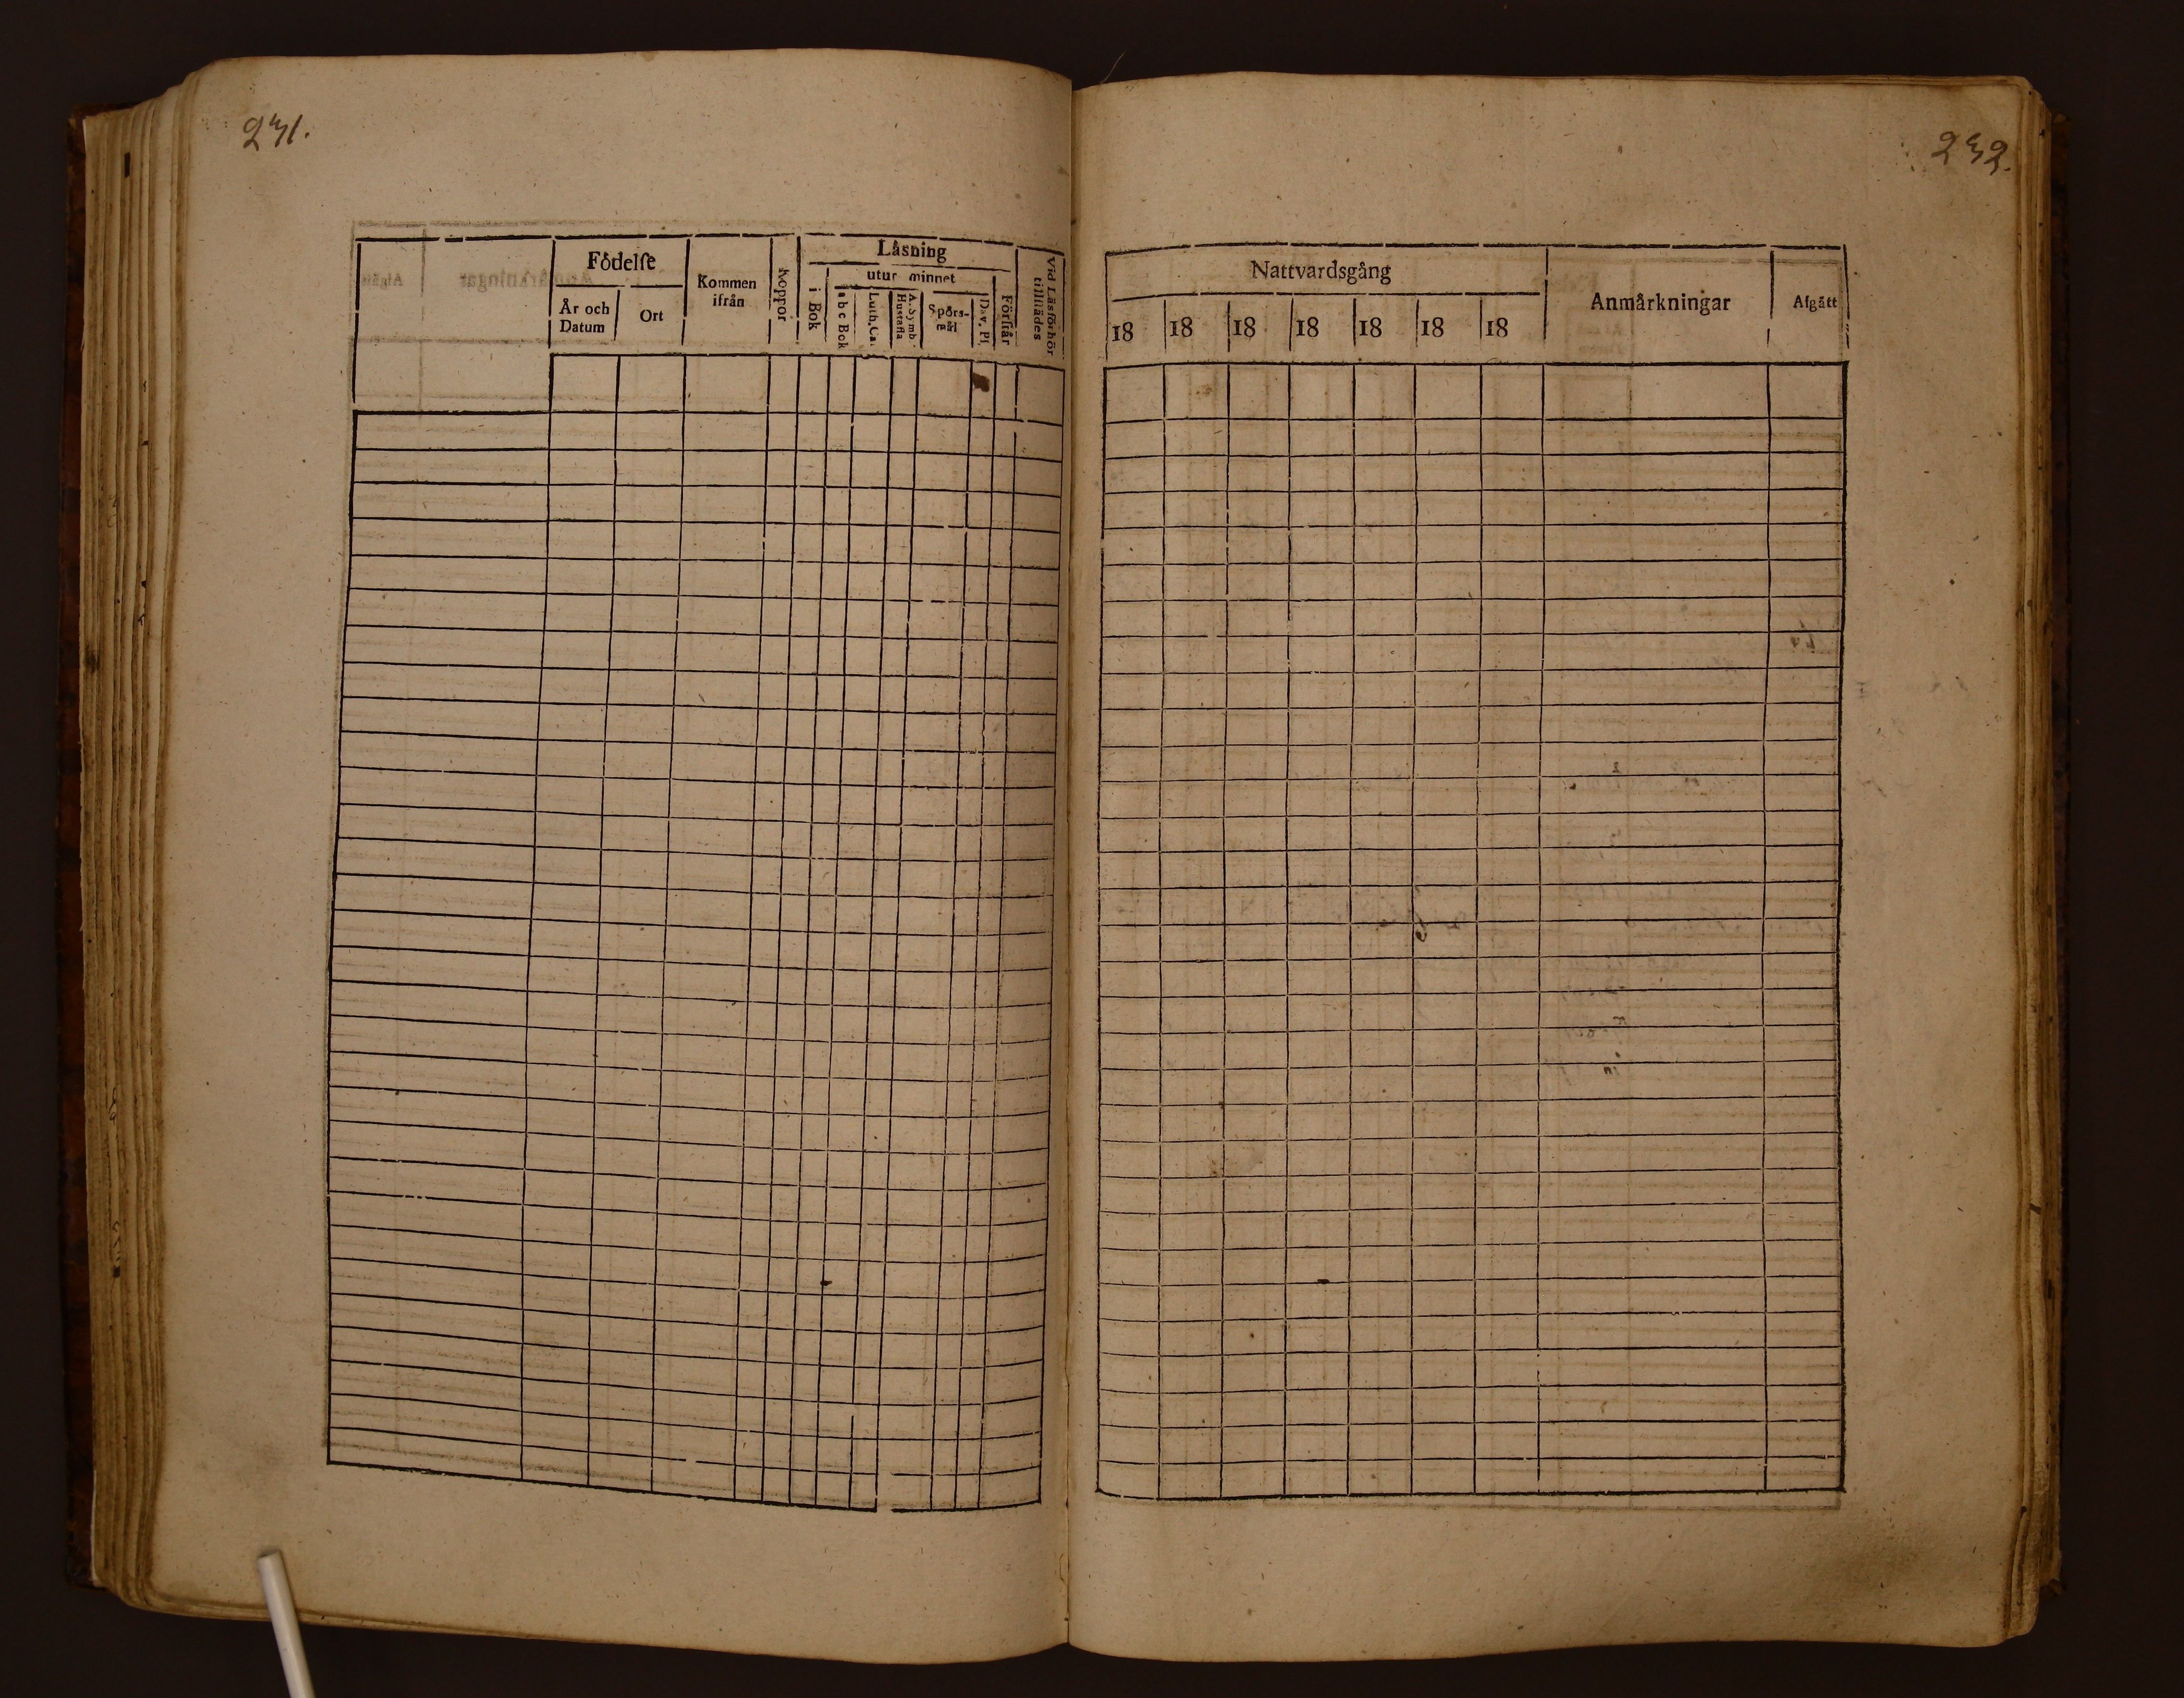 231.
Födelse
År och Datum
Ort
Kommen ifrån
Koppor
Läsning
i Bok
utur minnet
abc Bok
Luth. Ca.
A. Symb. Hustafla
Spörsmål
Dav. Ps.
Förstår
Vid Läsförhör tillstädes
232.
Nattvardsgång
18 18 18 18 18 18 18
Anmärkningar
Afgått